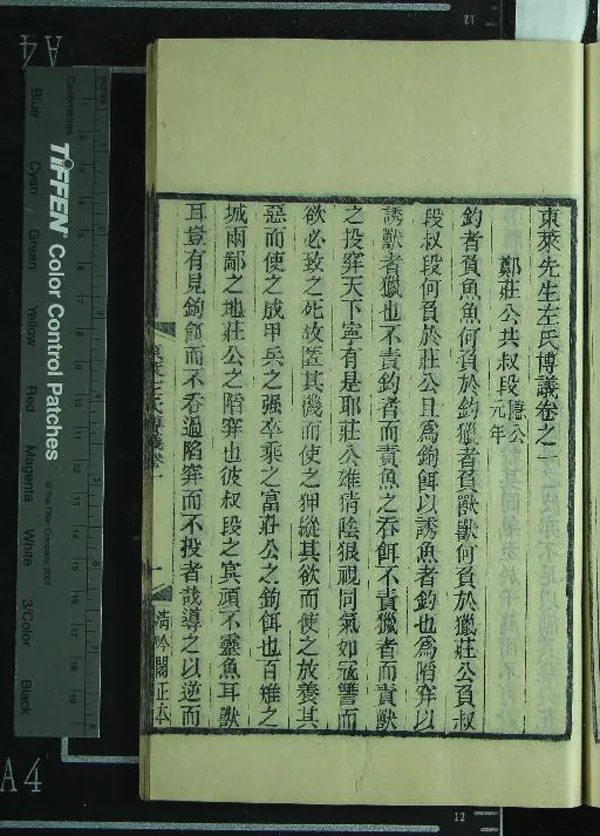 東萊先生左氏博議卷之一
鄭莊公共叔段隱公元年
釣者負魚魚何負於釣獵者負獸獸何負於獵莊公負叔
段叔段何負於莊公且爲鉤餌以誘魚者釣也爲陷穽以
誘獸者獵也不責釣者而責魚之吞餌不責獵者而責獸
之投穽天下寧有是耶莊公雄猜陰狠視同氣如寇讐而
欲必致之死故匿其機而使之狎縱其欲而使之放養其
惡而使之成甲兵之强卒乘之富莊公之鉤餌也百雉之
城兩鄙之地莊公之陷穽也彼叔段之冥頑不靈魚耳獸
耳豈有見鉤餌而不吞過陷穽而不投者哉導之以逆而
東萊左氏博議卷一
一
清吟閣正本
A4
A4
12
12
Inches
Centimetres
TIFFEN Color Control Patches
© The Tiffen Company, 2007
Blue
Cyan
Green
Yellow
Red
Magenta
White
3/Color
Black